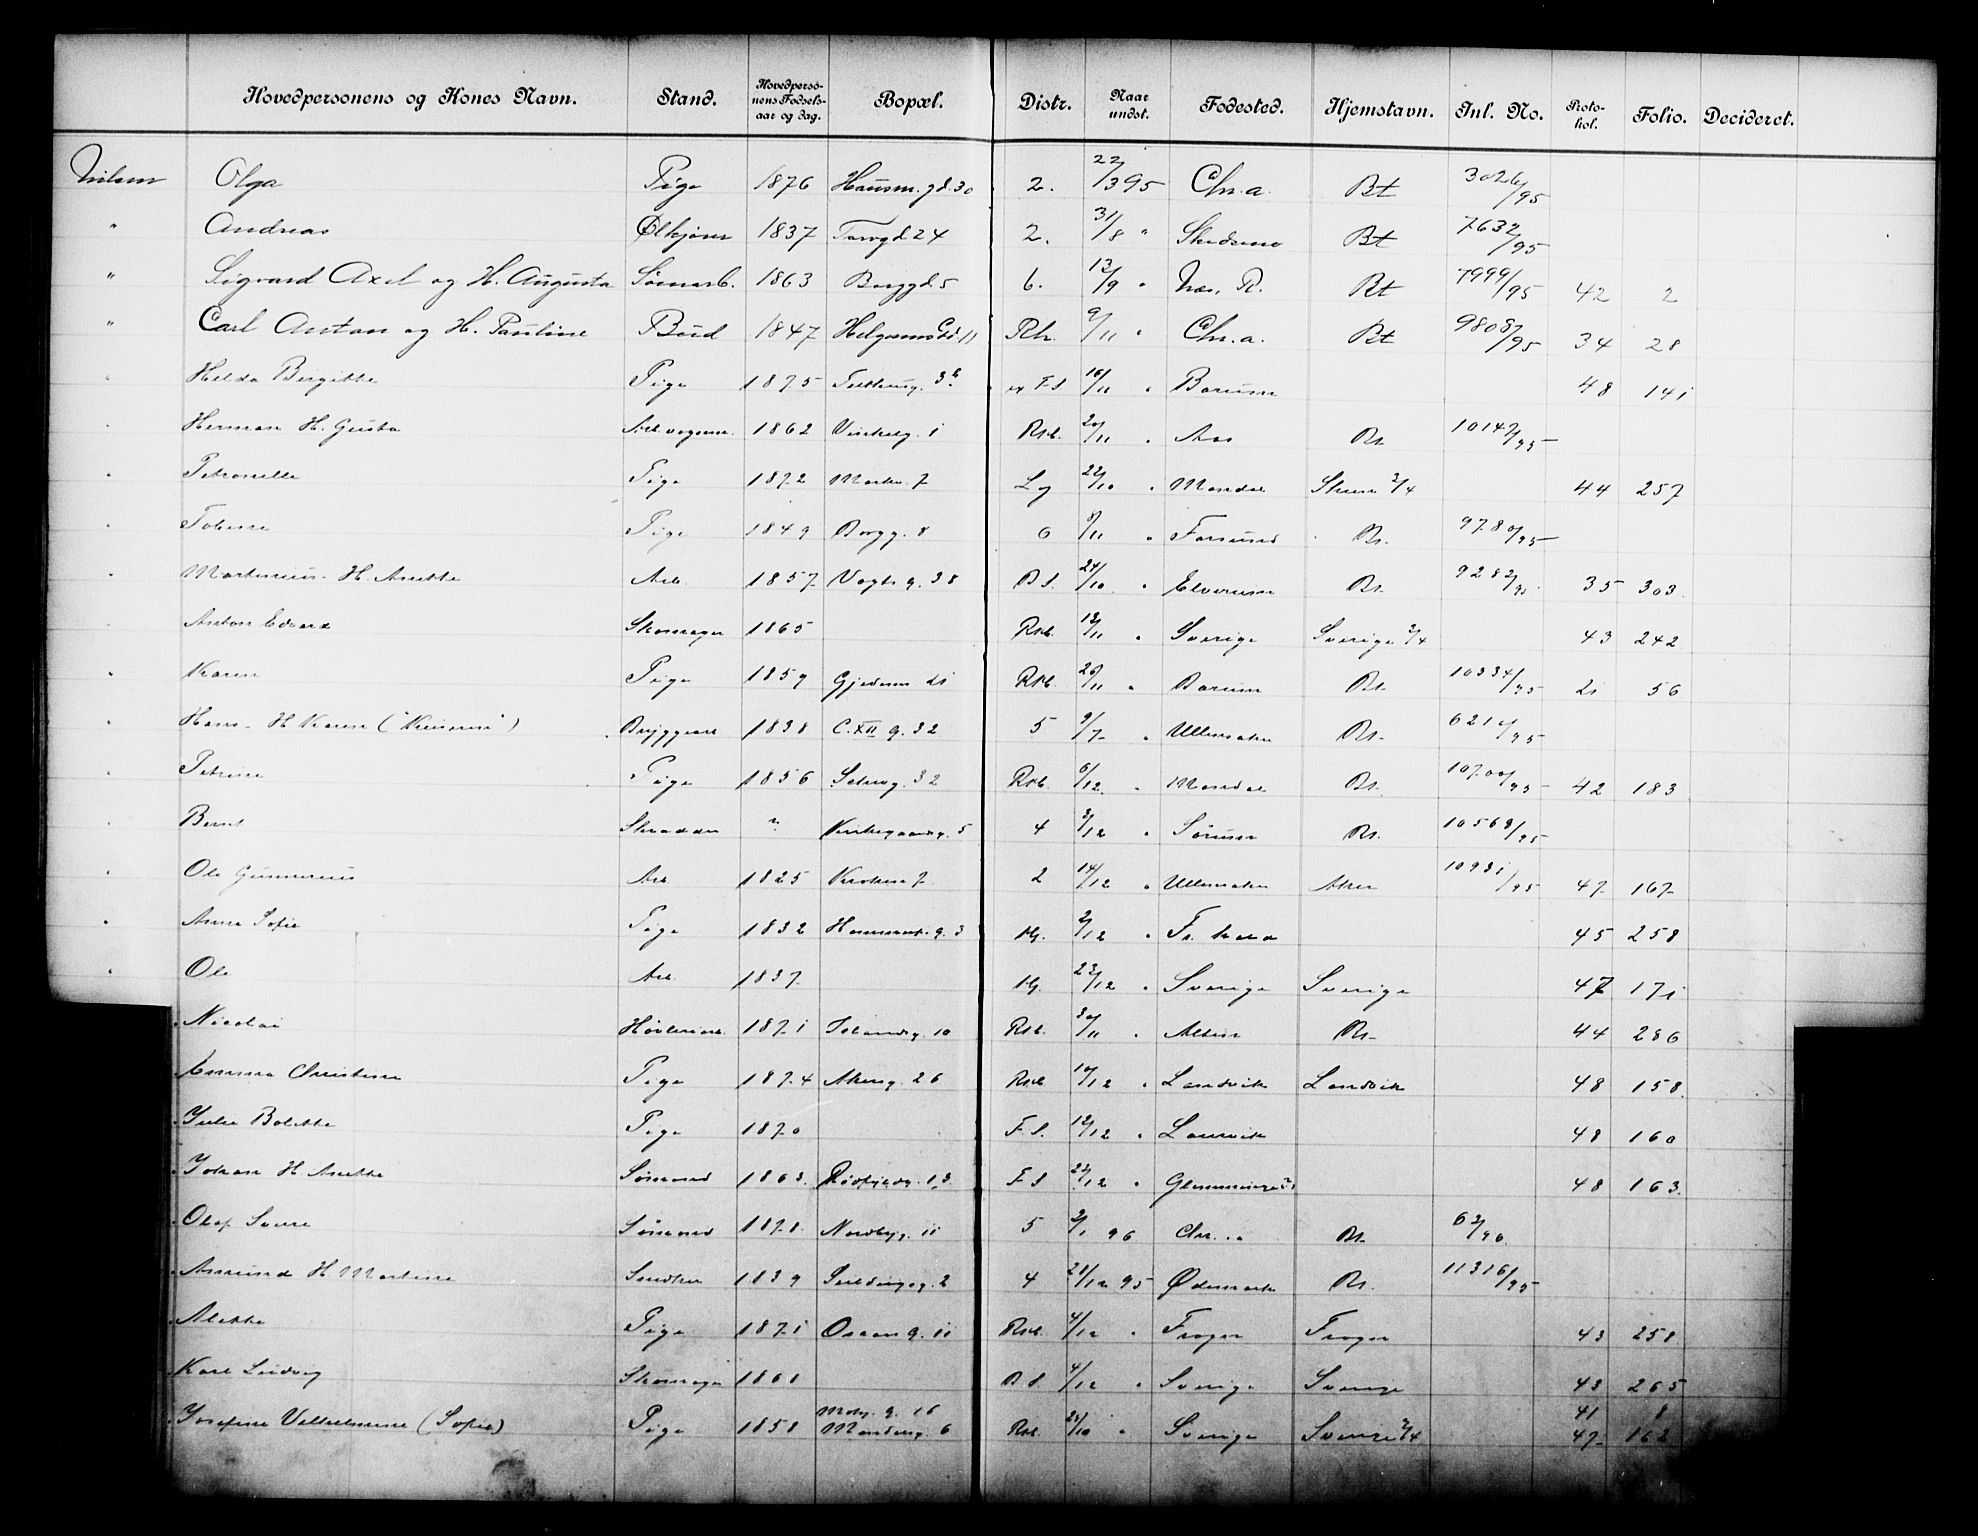 Hovedpersonens og Kones Navn. Stand. Hovedpersonens Fødselsaar og dag. Bopæl. Distr. Naar undst. Fødested. Hjemstavn. Inl. No. Protokol. Folio. Decideret.
Nilsen Olga Pige 1876 Hausm.gd. 30 2. 22/3 95 Chr.a. Bt 3026/95
" Andreas Ølkjører 1837 Torvgd 24 2. 31/8 " Skedsmo Bt 7632/95
" Sigvard Axel og H. Augusta Sømarb. 1863 Borggd 5 6. 13/9 " Næs, R. Bt 7999/95 42 2
" Carl Anton og H. Pauline Bud 1847 11 Rh. 9/11 " Chr.a. Bt 9808/95 34 28
" Hilda Bergitte Pige 1875 F.S 16/11 " Bærum 48 141
" Herman H. Gusta Arb. 1862 Vinkelg. 1 Rsb. 20/11 " Aas Bt. 10147/95
" Petronelle Pige 1872 7 Lg 22/10 " Mandal 2/4 44 257
" Tobine Pige 1849 Borgg. 8 6 8/11 " Farsund Bt. 9780/95
" Martinius. H. Anette Arb. 1857 Vogts g. 38 B S. 24/10 " Elverum Bt. 9282/95 35 303
" Anton Edvard Skomager 1865 Rsb. 12/11 " Sverige Sverige 2/4 43 242
" Karen Pige 1859 21 Rsb. 26/11 " Bærum Bt. 10334/95 21 56
" Hans - H Karen ( ) Bryggearb 1838 C. XII g. 32 5 9/7 " Ullensaker Bt. 95
" Petrine Pige 1856 32 Rsb. 6/12 " Mandal Bt. 10700/95 42 183
" Bernt Skrædder " Kirkegaardsg. 5 4 3/12 " Sørum Bt. 10568/95
" Ole Gunnerius Arb 1825 Kroken 7 2 14/12 " Ullensaker Aker 10931/95 47 167
" Anna Sofie Pige 1832 Hammersb. g. 3 2/12 " Fr. hald 45 258
" Ole Arb. 1837 23/12 " Sverige Sverige 47 171
Nicolai Høvleriarb. 1871 10 Rsb. 30/11 " Alten Bt. 44 286
Emma Christine Pige 1874 Akersg. 26 Rsb 10/12 " Landvik Landvik 48 158
Julie Bolette Pige 1870 F.S. 12/12 " Laurvik 48 160
Johan H Anette Sømand 1863 Rødfyldg. 13 F S 23/12 " 48 163
Olaf Sømand 1878 Nordbyg. 11 5 2/1 96 Chr.a Bt. 62/96
Amund H Martine Snedker 1839 Seildugsg. 2 4 21/12 95 Ødemark Bt. 11316/95
Alette Pige 1871 g. 11 Rsb. 4/12 " Frogn Frogn 43 258
Karl Ludvig Skomager 1861 B S. 4/12 " Sverige Sverige 43 265
Josefine Vilhelmine (Sofie) Pige 1858 g. 16 6 Rsb. 10 " Sverige Sverige 2/4 41 8 47 162